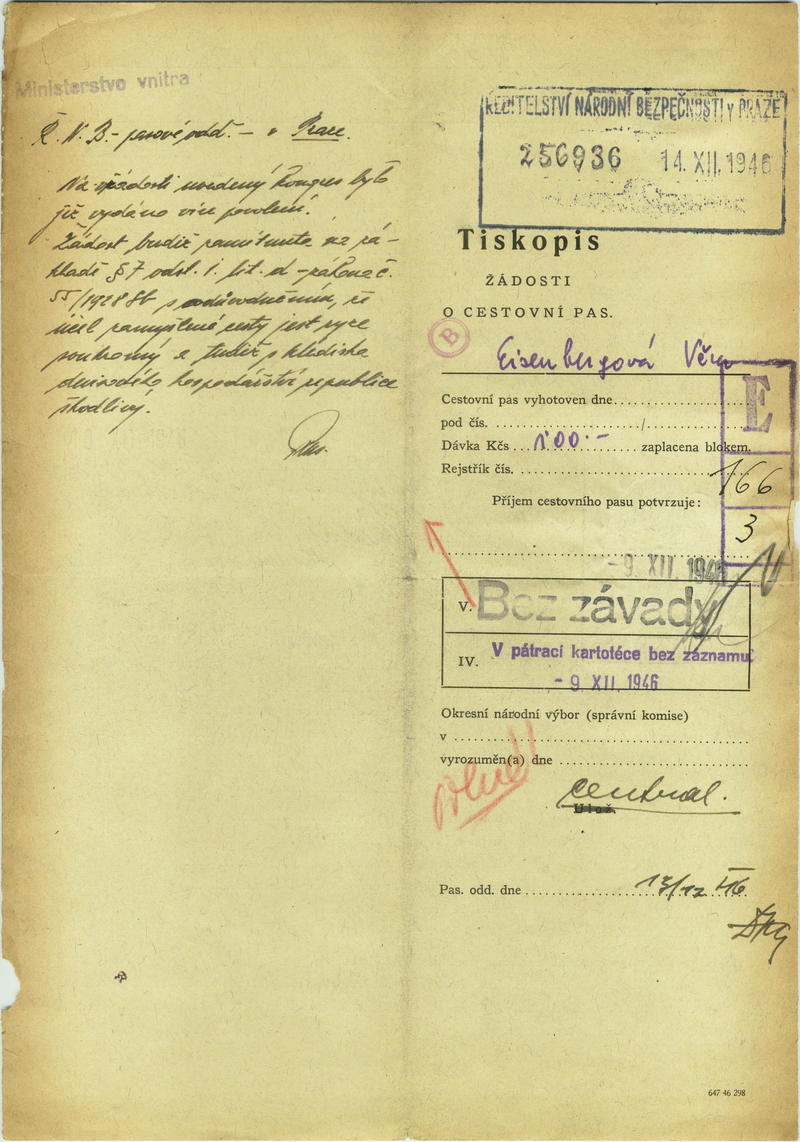 Ministerstvo vnitra
Ř. N. B. - pasové odd. - v Praze.
Na v žádosti uvedený kongres bylo
již vydáno více povolení.
Žádost budiž zamítnuta na zá-
kladě § 7 odst. 1. lit. d - zákona č.
55/1928 Sb s odůvodněním, že
účel zamýšlené cesty jest ryze
soukromý a tudíž s hlediska
devisového hospodářství republice
škodlivý.
ŘEDITELSTVÍ NÁRODNÍ BEZPEČNOSTI v PRAZE
256936 14. XII. 1946
Tiskopis
ŽÁDOSTI
O CESTOVNÍ PAS.
B
Eisenbergová Věra
E
Cestovní pas vyhotoven dne
pod čís. /
Dávka Kčs 100.- zaplacena blokem.
Rejstřík čís.
166
Příjem cestovního pasu potvrzuje:
3
- 9 XII. 1946
V. Bez závady
IV. V pátrací kartotéce bez záznamu
- 9 XII. 1946
Okresní národní výbor (správní komise)
v
vyrozuměn(a) dne
central.
Ulož.
Pas. odd. dne 13/12 46
647 46 298